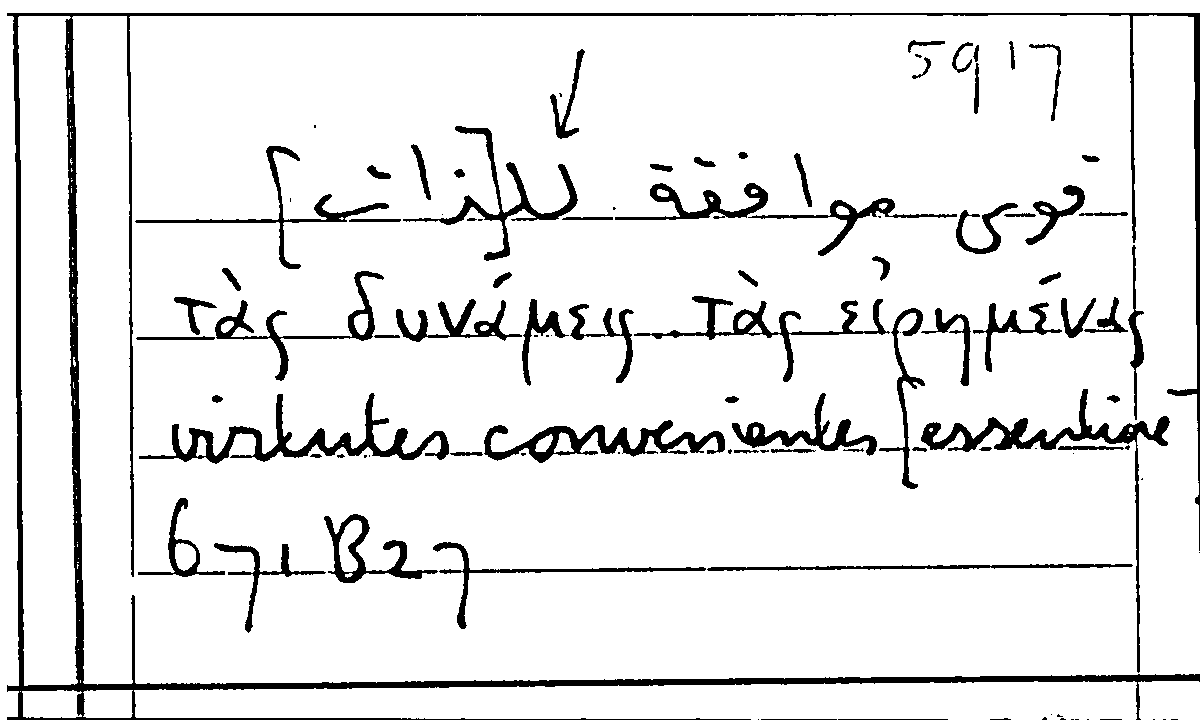 5917
قوى موافقة لل[ذات]
τὰς δυνάμεις .. τὰς εἰρημένας
virtutes convenientes [essentiae
671 B27